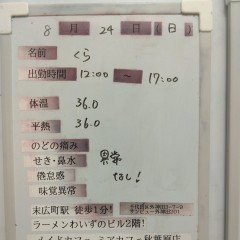 8月24日(日)
名前 くら
出勤時間 12:00 ～ 17:00
体温 36.0
平熱 36.0
のどの痛み
せき・鼻水 異常
倦怠感 なし!
味覚異常
末広町駅 徒歩1分!
ラーメンわいずのビル2階!
メイドカフェ ミアカフェ秋葉原店